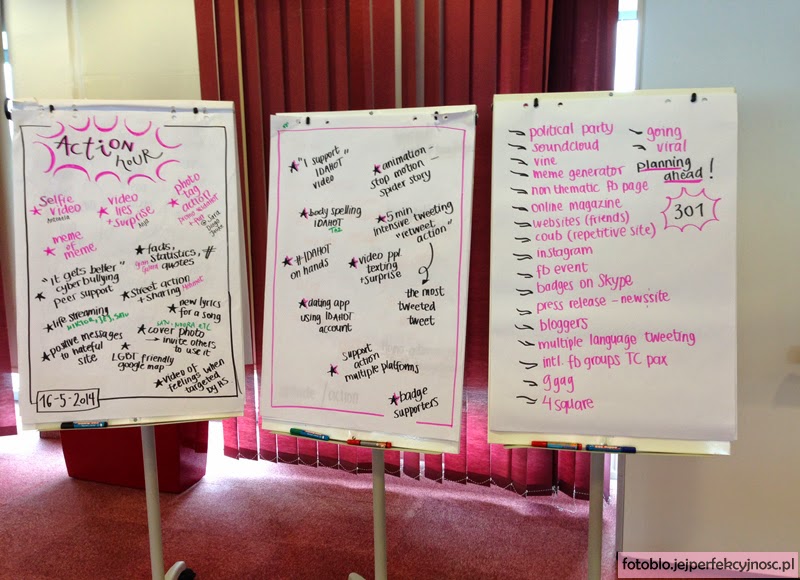 Action
hour
Selfie
video
video
lies
+ surprise
photo
tag
action
meme
of
meme
facts,
statistics, #
quotes
"It gets better"
cyberbullying
peer support
street action
+ sharing
life streaming
new lyrics
for a song
positive messages
to hateful
site
cover photo
→ invite others
to use it
LGBT friendly
google map
video of
feelings when
targeted
by HS
16-5-2014
"I support"
IDAHOT
video
animation -
stop motion -
spider story
body spelling
IDAHOT
5 min
intensive tweeting
"retweet
action"
#IDAHOT
on hands
video ppl.
texting
+ surprise
the most
tweeted
tweet
dating app
using IDAHOT
account
support
action
multiple platforms
badge
supporters
political party
soundcloud
vine
meme generator
non thematic fb page
online magazine
websites (friends)
coub (repetitive site)
instagram
fb event
badges on Skype
press release - newssite
bloggers
multiple language tweeting
intl. fb groups TC pax
9gag
4square
going
viral
planning
ahead!
301
fotoblo.jejperfekcyjnosc.pl